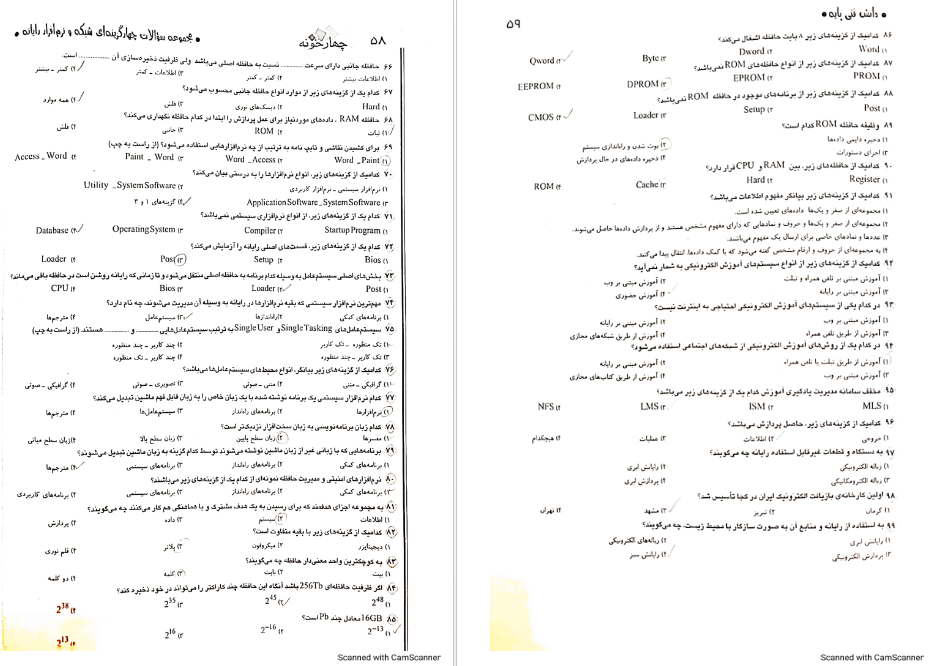 ۵۸ چهارخونه • مجموعه سؤالات چهارگزینه‌ای شبکه و نرم‌افزار رایانه •
۶۶ حافظه جانبی دارای سرعت ............ نسبت به حافظه اصلی می‌باشد ولی ظرفیت ذخیره‌سازی آن ............ است.
۱) اطلاعات بیشتر ۲) کمتر ـ کمتر ۳) اطلاعات ـ کمتر ۴) کمتر ـ بیشتر
۶۷ کدام یک از گزینه‌های زیر از موارد انواع حافظه جانبی محسوب می‌شود؟
۱) Hard ۲) دیسک‌های نوری ۳) فلش ۴) همه موارد
۶۸ حافظه RAM، داده‌های موردنیاز برای عمل پردازش را ابتدا در کدام حافظه نگهداری می‌کند؟
۱) ثبات ۲) ROM ۳) جانبی ۴) فلش
۶۹ برای کشیدن نقاشی و تایپ نامه به ترتیب از چه نرم‌افزارهایی استفاده می‌شود؟ (از راست به چپ)
۱) Word _ Paint ۲) Word _ Access ۳) Paint _ Word ۴) Access _ Word
۷۰ کدامیک از گزینه‌های زیر، انواع نرم‌افزارها را به درستی بیان می‌کند؟
۱) نرم‌افزار سیستمی ـ نرم‌افزار کاربردی ۲) Utility _ System Software
۳) Application Software _ System Software ۴) گزینه‌های ۱ و ۳
۷۱ کدام یک از گزینه‌های زیر، از انواع نرم‌افزاری سیستمی نمی‌باشد؟
۱) Startup Program ۲) Compiler ۳) Operating System ۴) Database
۷۲ کدام یک از گزینه زیر، قسمت‌های اصلی رایانه را آزمایش می‌کند؟
۱) Bios ۲) Setup ۳) Post ۴) Loader
۷۳ بخش‌های اصلی سیستم‌عامل به وسیله کدام برنامه به حافظه اصلی منتقل می‌شود و تا زمانی که رایانه روشن است در حافظه باقی می‌ماند؟
۱) Post ۲) Loader ۳) Bios ۴) CPU
۷۴ مهم‌ترین نرم‌افزار سیستمی که بقیه نرم‌افزارها در رایانه به وسیله آن مدیریت می‌شوند، چه نام دارد؟
۱) برنامه‌های کمکی ۲) راه‌اندازها ۳) سیستم‌عامل ۴) مترجم‌ها
۷۵ سیستم‌عامل‌های Single Tasking و Single User به ترتیب سیستم‌عامل‌هایی ............ و ............ هستند. (از راست به چپ)
۱) تک منظوره ـ تک کاربر ۲) چند کاربر ـ چند منظوره
۳) تک کاربر ـ چند منظوره ۴) چند کاربر ـ تک منظوره
۷۶ کدامیک از گزینه زیر بیانگر، انواع محیط‌های سیستم‌عامل‌ها می‌باشد؟
۱) گرافیکی ـ متنی ۲) متنی ـ صوتی ۳) تصویری ـ صوتی ۴) گرافیکی ـ صوتی
۷۷ کدام نرم‌افزار سیستمی یک برنامه نوشته شده با یک زبان خاص را به زبان قابل فهم ماشین تبدیل می‌کند؟
۱) نرم‌افزارها ۲) برنامه‌های راه‌انداز ۳) سیستم‌عامل‌ها ۴) مترجم‌ها
۷۸ کدام زبان برنامه‌نویسی به زبان سخت‌افزار نزدیک‌تر است؟
۱) مفسرها ۲) زبان سطح پایین ۳) زبان سطح بالا ۴) زبان سطح میانی
۷۹ برنامه‌هایی که با زبانی غیر از زبان ماشین نوشته می‌شوند توسط کدام گزینه به زبان ماشین تبدیل می‌شوند؟
۱) برنامه‌های کمکی ۲) برنامه‌های راه‌انداز ۳) برنامه‌های سیستمی ۴) مترجم‌ها
۸۰ نرم‌افزارهای امنیتی و مدیریت حافظه نمونه‌ای از کدام یک از گزینه‌های زیر می‌باشند؟
۱) برنامه‌های کمکی ۲) برنامه‌های راه‌انداز ۳) برنامه‌های سیستمی ۴) برنامه‌های کاربردی
۸۱ به مجموعه اجزای هدفمند که برای رسیدن به یک هدف مشترک و با هماهنگی هم کار می‌کنند چه می‌گویند؟
۱) اطلاعات ۲) سیستم ۳) داده ۴) پردازش
۸۲ کدامیک از گزینه‌های زیر با بقیه متفاوت است؟
۱) دیجیتایزر ۲) میکروفون ۳) پلاتر ۴) قلم نوری
۸۳ به کوچکترین واحد معنی‌دار حافظه چه می‌گویند؟
۱) بیت ۲) بایت ۳) کلمه ۴) دو کلمه
۸۴ اگر ظرفیت حافظه‌ای 256Tb باشد آنگاه این حافظه چند کاراکتر را می‌تواند در خود ذخیره کند؟
۱) 2^48 ۲) 2^45 ۳) 2^35 ۴) 2^38
۸۵ 16GB معادل چند Pb است؟
۱) 2^-13 ۲) 2^-16 ۳) 2^16 ۴) 2^13
Scanned with CamScanner
• دانش فنی پایه • ۵۹
۸۶ کدامیک از گزینه‌های زیر ۸ بایت حافظه اشغال می‌کند؟
۱) Word ۲) Dword ۳) Byte ۴) Qword
۸۷ کدامیک از گزینه‌های زیر از انواع حافظه‌های ROM نمی‌باشد؟
۱) PROM ۲) EPROM ۳) DPROM ۴) EEPROM
۸۸ کدامیک از گزینه‌های زیر از برنامه‌های موجود در حافظه ROM نمی‌باشد؟
۱) Post ۲) Setup ۳) Loader ۴) CMOS
۸۹ وظیفه حافظه ROM کدام است؟
۱) ذخیره دایمی داده‌ها ۲) بوت شدن و راه‌اندازی سیستم
۳) اجرای دستورات ۴) ذخیره داده‌های در حال پردازش
۹۰ کدامیک از حافظه‌های زیر، بین RAM و CPU قرار دارد؟
۱) Register ۲) Hard ۳) Cache ۴) ROM
۹۱ کدامیک از گزینه‌های زیر بیانگر مفهوم اطلاعات می‌باشد؟
۱) مجموعه‌ای از صفر و یک‌ها داده‌های تعیین شده است.
۲) مجموعه‌ای از صفر و یک‌ها و حروف و نمادهایی که دارای مفهوم مشخص هستند و از پردازش داده‌ها حاصل می‌شوند.
۳) عددها و نمادهای خاصی برای ارسال یک مفهوم می‌باشند.
۴) به مجموعه‌ای از حروف و ارقام مشخص گفته می‌شود که با کمک داده‌ها، انتقال پیدا می‌کنند.
۹۲ کدامیک از گزینه‌های زیر از انواع سیستم‌های آموزش الکترونیکی به شمار نمی‌آید؟
۱) آموزش مبتنی بر تلفن همراه و تبلت ۲) آموزش مبتنی بر وب
۳) آموزش مبتنی بر رایانه ۴) آموزش حضوری
۹۳ در کدام یکی از سیستم‌های آموزش الکترونیکی احتیاجی به اینترنت نیست؟
۱) آموزش مبتنی بر وب ۲) آموزش مبتنی بر رایانه
۳) آموزش از طریق تلفن همراه ۴) آموزش از طریق شبکه‌های مجازی
۹۴ در کدام یک از روش‌های آموزش الکترونیکی از شبکه‌های اجتماعی استفاده می‌شود؟
۱) آموزش از طریق تبلت یا تلفن همراه ۲) آموزش مبتنی بر رایانه
۳) آموزش مبتنی بر وب ۴) آموزش از طریق کتاب‌های مجازی
۹۵ مخفف سامانه مدیریت یادگیری آموزش کدام یک از گزینه‌های زیر می‌باشد؟
۱) MLS ۲) ISM ۳) LMS ۴) NFS
۹۶ کدامیک از گزینه‌های زیر، حاصل پردازش می‌باشد؟
۱) خروجی ۲) اطلاعات ۳) عملیات ۴) هیچکدام
۹۷ به دستگاه و قطعات غیرقابل استفاده رایانه چه می‌گویند؟
۱) زباله الکترونیکی ۲) رایانش ابری
۳) زباله الکترومکانیکی ۴) پردازش ابری
۹۸ اولین کارخانه‌ی بازیافت الکترونیک ایران در کجا تأسیس شد؟
۱) کرمان ۲) تبریز ۳) مشهد ۴) تهران
۹۹ به استفاده از رایانه و منابع آن به صورت سازگار با محیط زیست، چه می‌گویند؟
۱) رایانش ابری ۲) زباله‌های الکترونیکی
۳) پردازش الکترونیکی ۴) رایانش سبز
Scanned with CamScanner